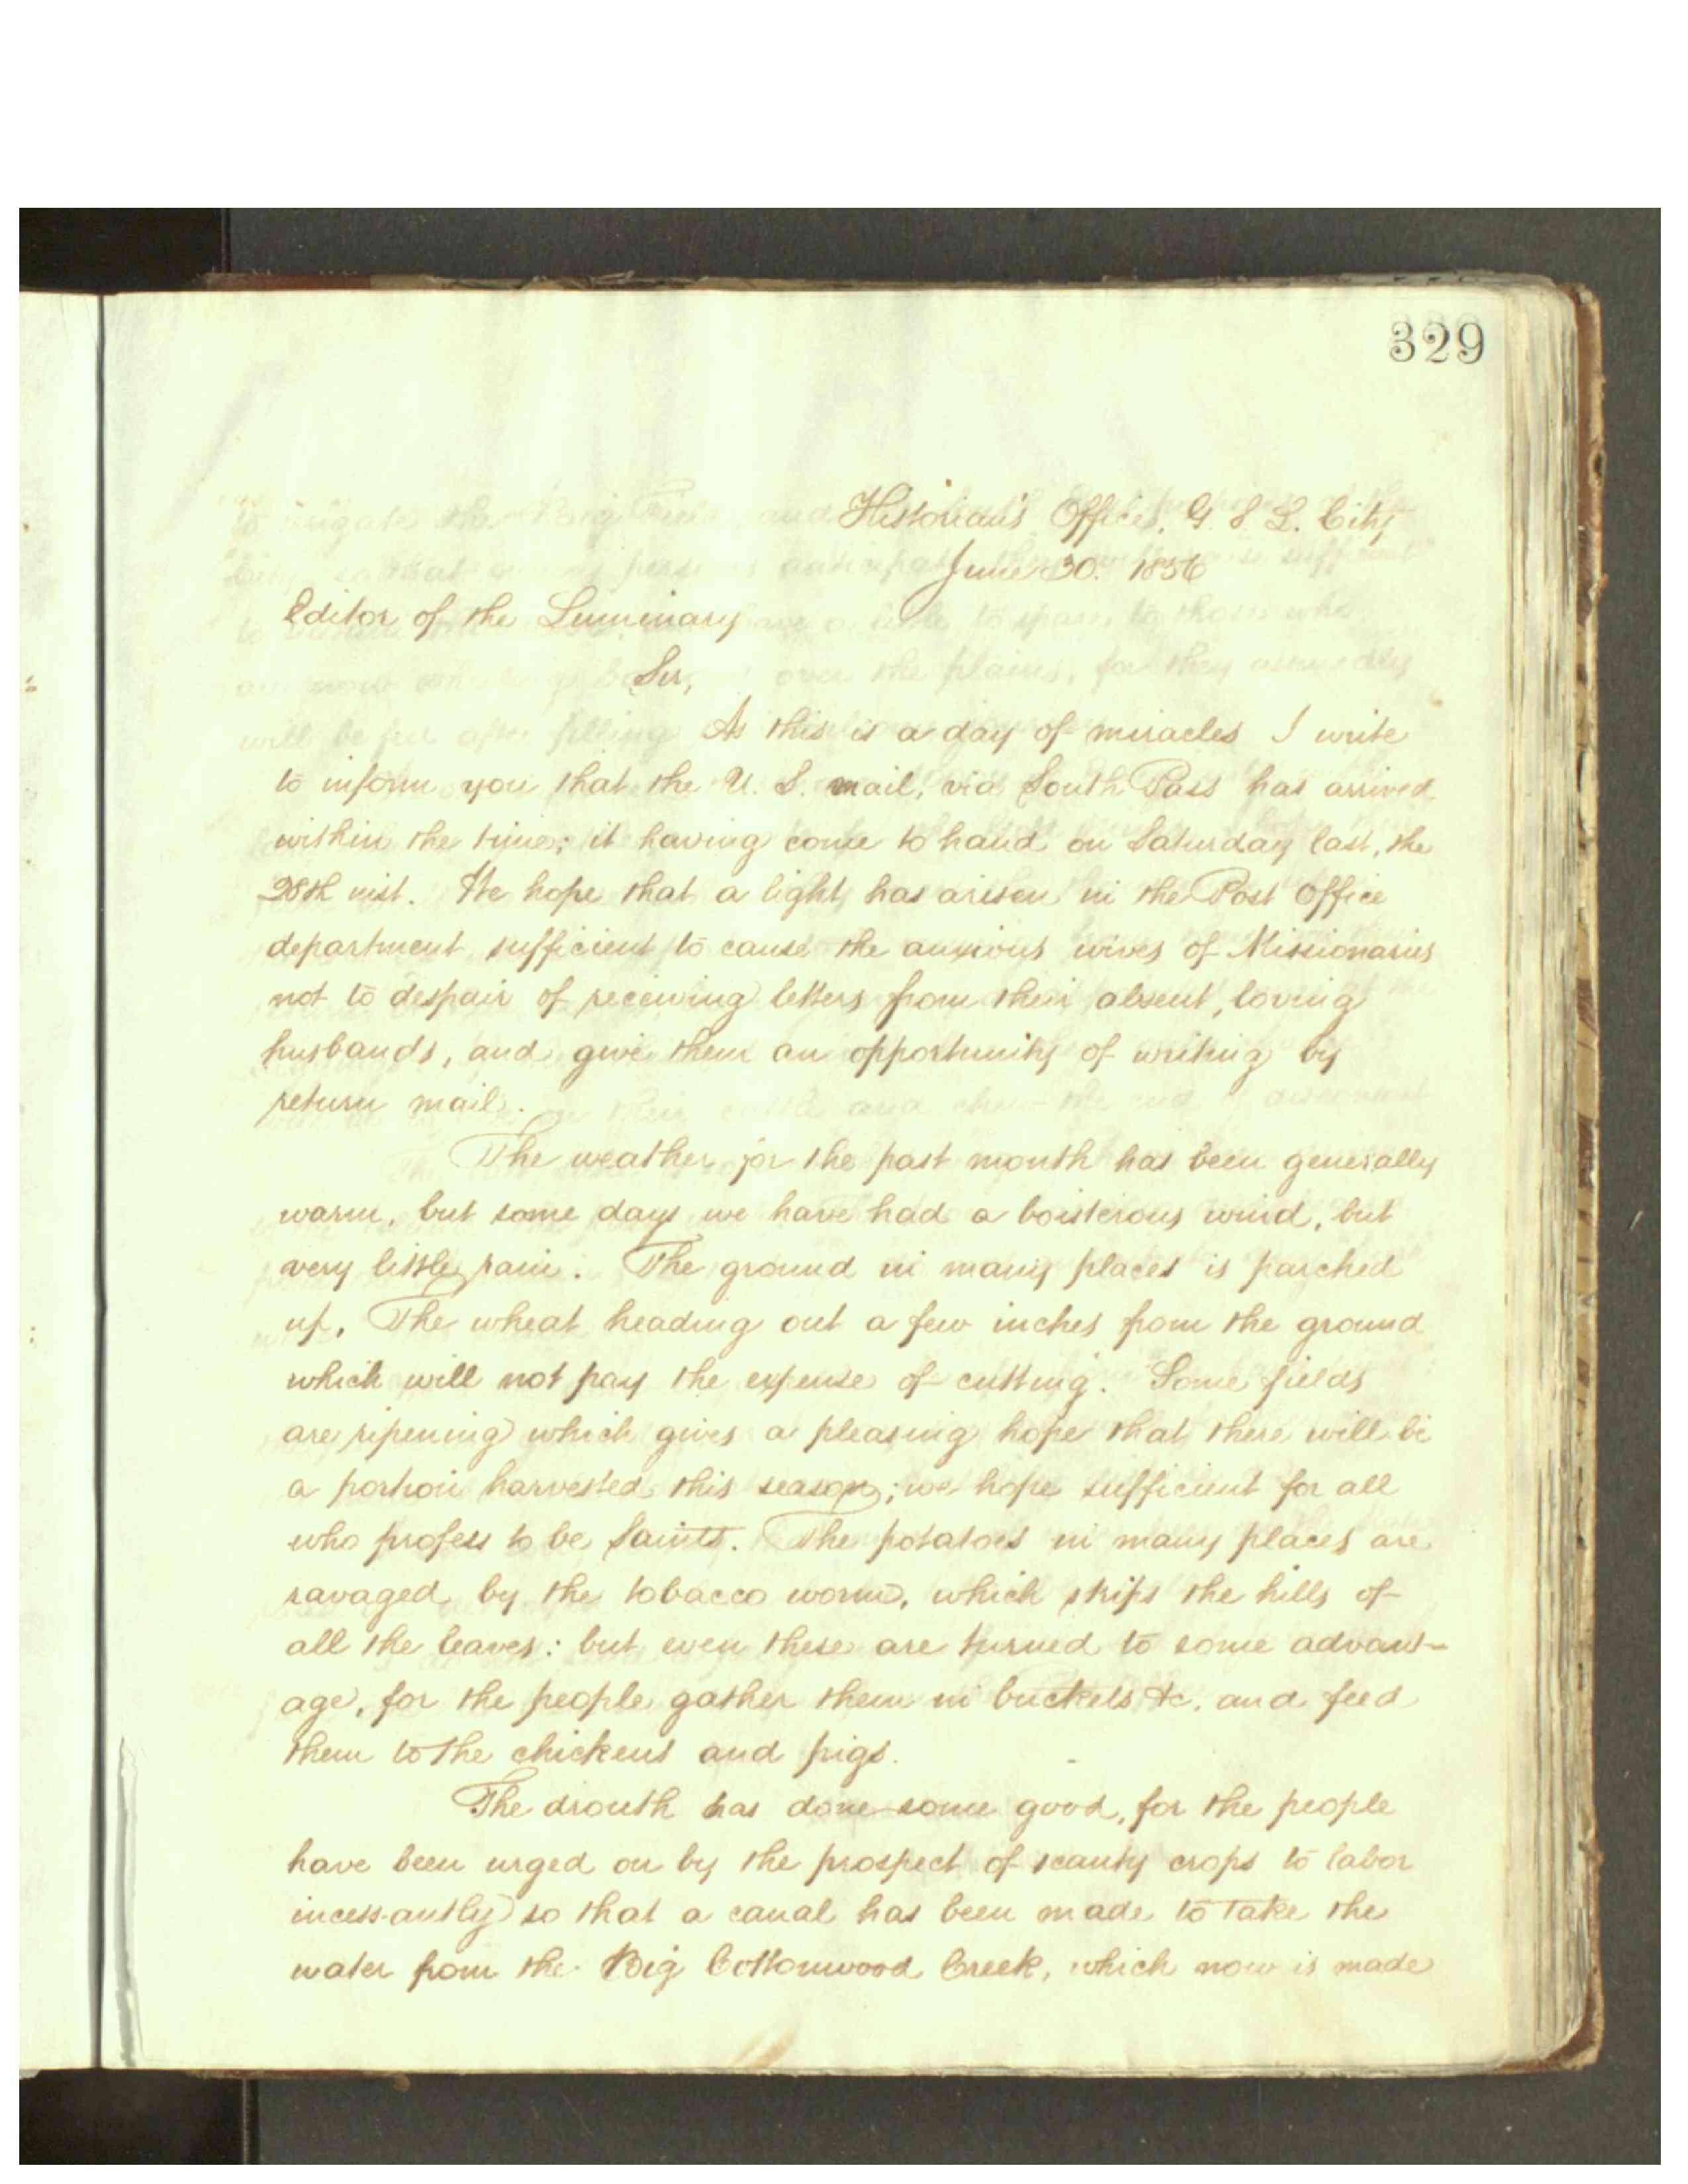 329
Historian's Office, G. S L. City
June 30. 1856
Editor of the Luminary
Sir,
As this is a day of miracles I write
to inform you that the U. S. mail, via South Pass has arrived
within the time; it having come to hand on Saturday last, the
28th inst. We hope that a light has arisen in the Post Office
department sufficient to cause the anxious wives of Missionaries
not to despair of receiving letters from their absent, loving
husbands, and give them an opportunity of writing by
return mail.
The weather for the past month has been generally
warm, but some days we have had a boisterous wind, but
very little rain. The ground in many places is parched
up, The wheat heading out a few inches from the ground
which will not pay the expense of cutting. Some fields
are ripening which gives a pleasing hope that there will be
a portion harvested this season; we hope sufficient for all
who profess to be Saints. The potatoes in many places are
ravaged by the tobacco worm, which strips the hills of
all the leaves: but even these are turned to some advant-
age, for the people gather them in buckets &c. and feed
them to the chickens and pigs.
The drouth has done some good, for the people
have been urged on by the prospect of scanty crops to labor
incessantly so that a canal has been made to take the
water from the Big Cottonwood Creek, which now is made